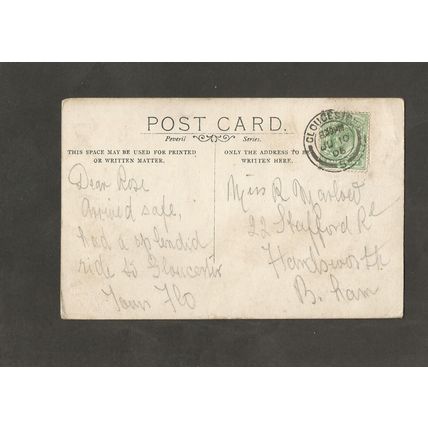 POST CARD.
Peveril Series.
THIS SPACE MAY BE USED FOR PRINTED
OR WRITTEN MATTER.
ONLY THE ADDRESS TO BE
WRITTEN HERE.
Dear Rose
Arrived safe,
had a splendid
ride to Gloucester
Yours Flo
Miss R Marlow
22 Stafford Rd
Handsworth
B. ham
GLOUCESTER
JU 10
06